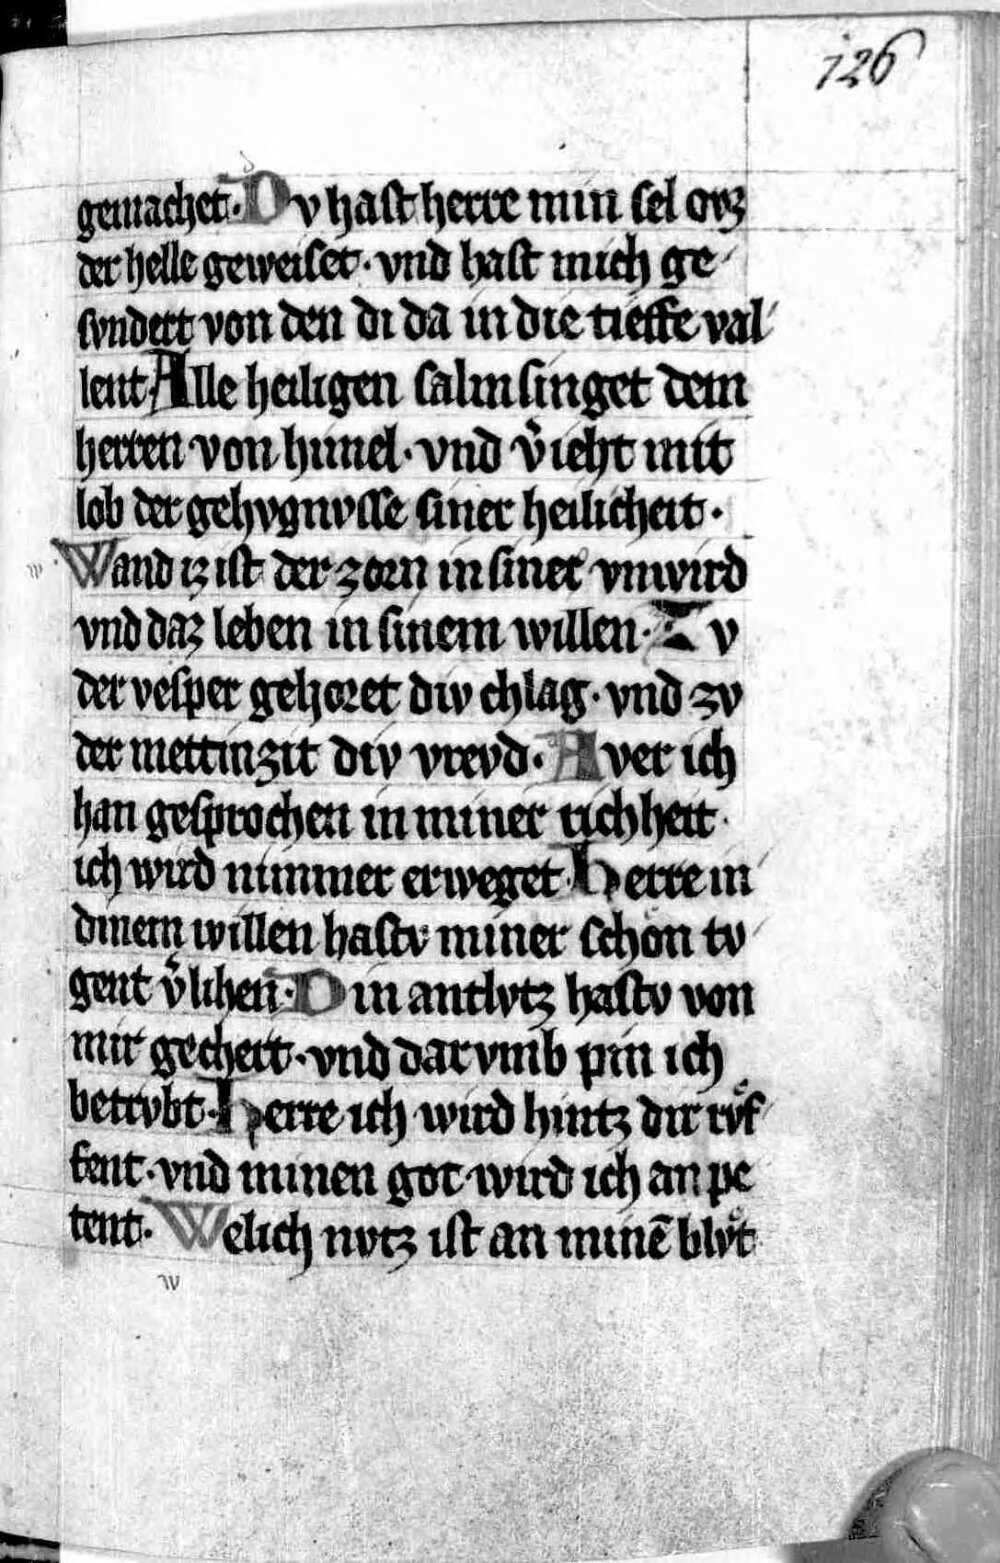 126
gemachet. Dv hast herre min sel ovz
der helle geweiset. vnd hast mich ge
svndert von den di da in die tieffe val
lent Alle heiligen salm singet dem
herren von himel. vnd v̾ieht mit
lob der gehvgnvsse siner heilicheit.
Wand iz ist der zorn in siner vnwird
vnd daz leben in sinem willen. Zv
der vesper gehoret div chlag. vnd zv
der mettinzit div vrevd. Aver ich
han gesprochen in miner richheit.
ich wird nimmer erweget. Herre in
dinem willen hastv miner schon tv
gent v̾lihen. Din antlvtz hastv von
mir gechert. vnd dar vmb pin ich
betrvbt. Herre ich wird hintz dir rvͦf
fent. vnd minen got wird ich an pe
tent. Welich nvtz ist an minē blvͦt
w